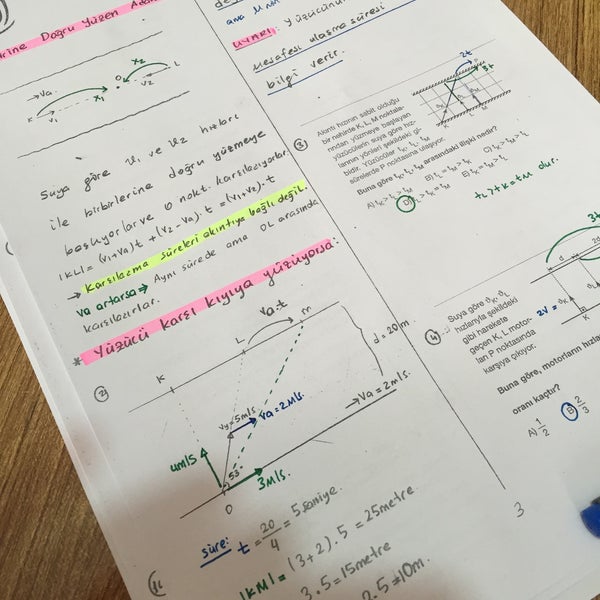 rine Doğru Yüzen Ada
Va
X1
X2
K
V1
O
V2
L
Suya göre V1 ve V2 hızları
ile birbirlerine doğru yüzmeye
başlıyorlar ve O nokt. karşılaşıyorlar.
|KL| = (V1+Va).t + (V2-Va).t = (V1+V2).t
→ Karşılaşma süreleri akıntıya bağlı değil.
Va artarsa ⇒ Aynı sürede ama OL arasında
karşılaşırlar.
* Yüzücü karşı kıyıya yüzüyorsa:
2
Va.t
K
L
M
d = 20 m
Vy = 5m/s
Va = 2m/s
→ Va = 2m/s
4m/s
53°
3m/s.
O
süre: t = 20/4 = 5 saniye.
|KM| = (3+2).5 = 25 metre
3.5 = 15 metre
2.5 = 10m.
UYARI: Yüzücünün
mesafesi ulaşma süresi
bilgi verir.
3
2t
3t
Akıntı hızının sabit olduğu
bir nehirde K, L, M noktala-
rından yüzmeye başlayan
yüzücülerin suya göre hız-
larının yönleri şekildeki gi-
bidir. Yüzücüler tK, tL, tM
sürelerde P noktasına ulaşıyor.
Buna göre tK, tL, tM arasındaki ilişki nedir?
tL > tK = tM dur.
3t
d
2d
4
Suya göre ϑK, ϑL
hızlarıyla şekildeki
gibi harekete
geçen K, L motor-
ları P noktasında
karşıya çıkıyor.
2V =
K
Buna göre, motorların hızla
oranı kaçtır?
A) 1/2
B) 2/3
3